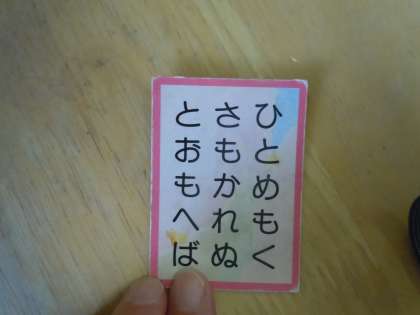 ひとめもく
さもかれぬ
とおもへば